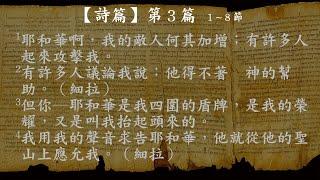 【詩篇】第3篇 1~8節
1耶和華啊,我的敵人何其加增;有許多人
起來攻擊我。
2有許多人議論我說:他得不著 神的幫
助。(細拉)
3但你─耶和華是我四圍的盾牌,是我的榮
耀,又是叫我抬起頭來的。
4我用我的聲音求告耶和華,他就從他的聖
山上應允我。(細拉)